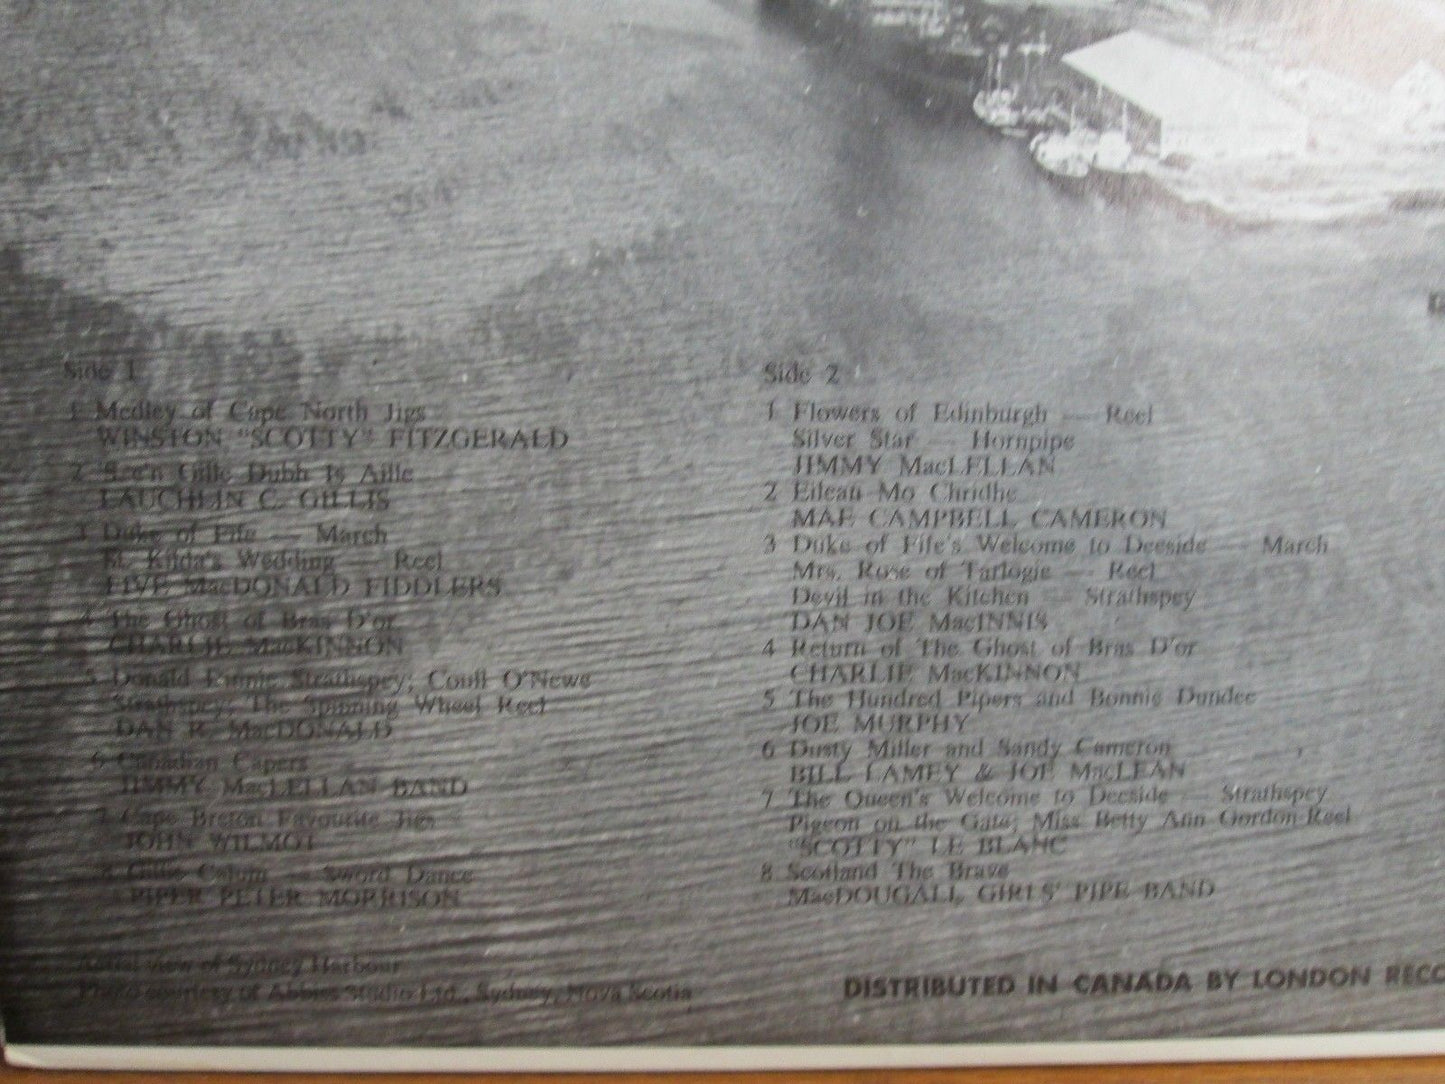 Side 1
1 Medley of Cape North Jigs
WINSTON "SCOTTY" FITZGERALD
2 Gille Dubh Is Aille
LAUCHLIN C. GILLIS
3 Duke of Fife — March
St. Kilda's Wedding — Reel
FIVE MacDONALD FIDDLERS
4 The Ghost of Bras D'or
CHARLIE MacKINNON
5 Donald Strathspey; O'Newe
Strathspey; The Spinning Wheel Reel
DAN R. MacDONALD
6 Canadian Capers
JIMMY MacLELLAN BAND
7 Cape Breton Favourite Jigs
JOHN WILMOT
8 Gillie Calum — Sword Dance
PIPER PETER MORRISON
Aerial view of Sydney Harbour
Photo courtesy of Abbass Studio Ltd., Sydney, Nova Scotia
Side 2
1 Flowers of Edinburgh — Reel
Silver Star — Hornpipe
JIMMY MacLELLAN
2 Eilean Mo Chridhe
MAE CAMPBELL CAMERON
3 Duke of Fife's Welcome to Deeside — March
Mrs. Rose of Tarlogie — Reel
Devil in the Kitchen — Strathspey
DAN JOE MacINNIS
4 Return of The Ghost of Bras D'or
CHARLIE MacKINNON
5 The Hundred Pipers and Bonnie Dundee
JOE MURPHY
6 Dusty Miller and Sandy Cameron
BILL LAMEY & JOE MacLEAN
7 The Queen's Welcome to Deeside — Strathspey
Pigeon on the Gate; Miss Betty Ann Gordon-Reel
"SCOTTY" LE BLANC
8 Scotland The Brave
MacDOUGALL GIRLS' PIPE BAND
DISTRIBUTED IN CANADA BY LONDON RECO